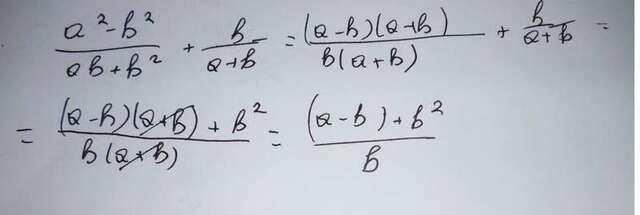 (a² - b²)/(ab + b²) + b/(a + b) = ((a - b)(a + b))/(b(a + b)) + b/(a + b) =
= ((a - b)(a + b) + b²)/(b(a + b)) = ((a - b) + b²)/b